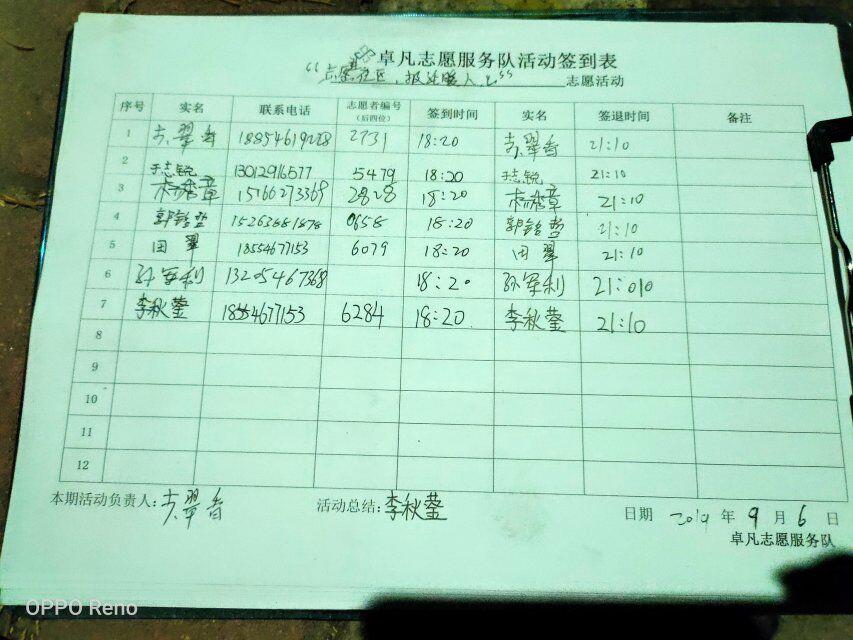 卓凡志愿服务队活动签到表
志愿活动
序号 实名 联系电话 志愿者编号（后四位） 签到时间 实名 签退时间 备注
1 翠香 18854619228 2731 18:20 翠香 21:10
2 于志锐 13012916577 5479 18:20 于志锐 21:10
3 章 15166273369 2828 18:20 章 21:10
4 郭铭哲 15263881878 0658 18:20 郭铭哲 21:10
5 田翠 18554677153 6079 18:20 田翠 21:10
6 孙军利 13205467368 18:20 孙军利 21:010
7 李秋莹 18554677153 6284 18:20 李秋莹 21:10
8
9
10
11
12
本期活动负责人: 翠香 活动总结: 李秋莹 日期 2019 年 9 月 6 日
卓凡志愿服务队
OPPO Reno